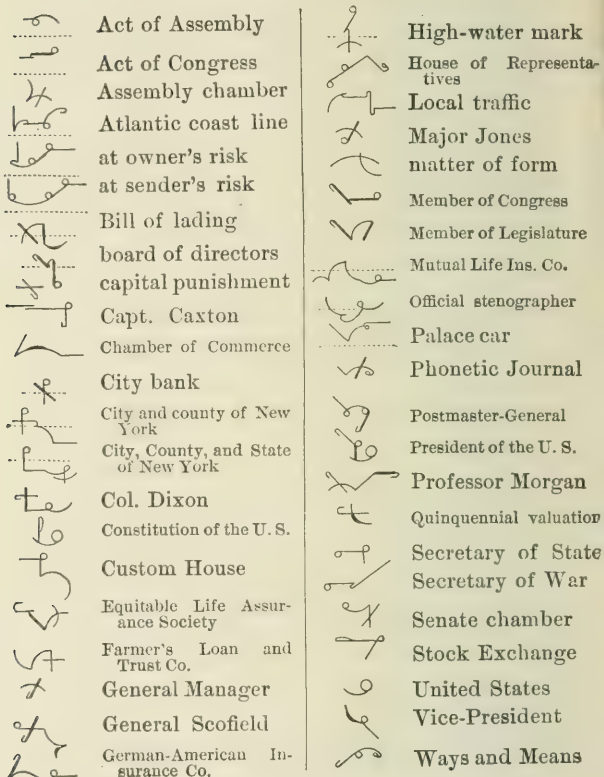 Act of Assembly
Act of Congress
Assembly chamber
Atlantic coast line
at owner's risk
at sender's risk
Bill of lading
board of directors
capital punishment
Capt. Caxton
Chamber of Commerce
City bank
City and county of New
York
City, County, and State
of New York
Col. Dixon
Constitution of the U. S.
Custom House
Equitable Life Assur-
ance Society
Farmer's Loan and
Trust Co.
General Manager
General Scofield
German-American In-
surance Co.
High-water mark
House of Representa-
tives
Local traffic
Major Jones
matter of form
Member of Congress
Member of Legislature
Mutual Life Ins. Co.
Official stenographer
Palace car
Phonetic Journal
Postmaster-General
President of the U. S.
Professor Morgan
Quinquennial valuation
Secretary of State
Secretary of War
Senate chamber
Stock Exchange
United States
Vice-President
Ways and Means